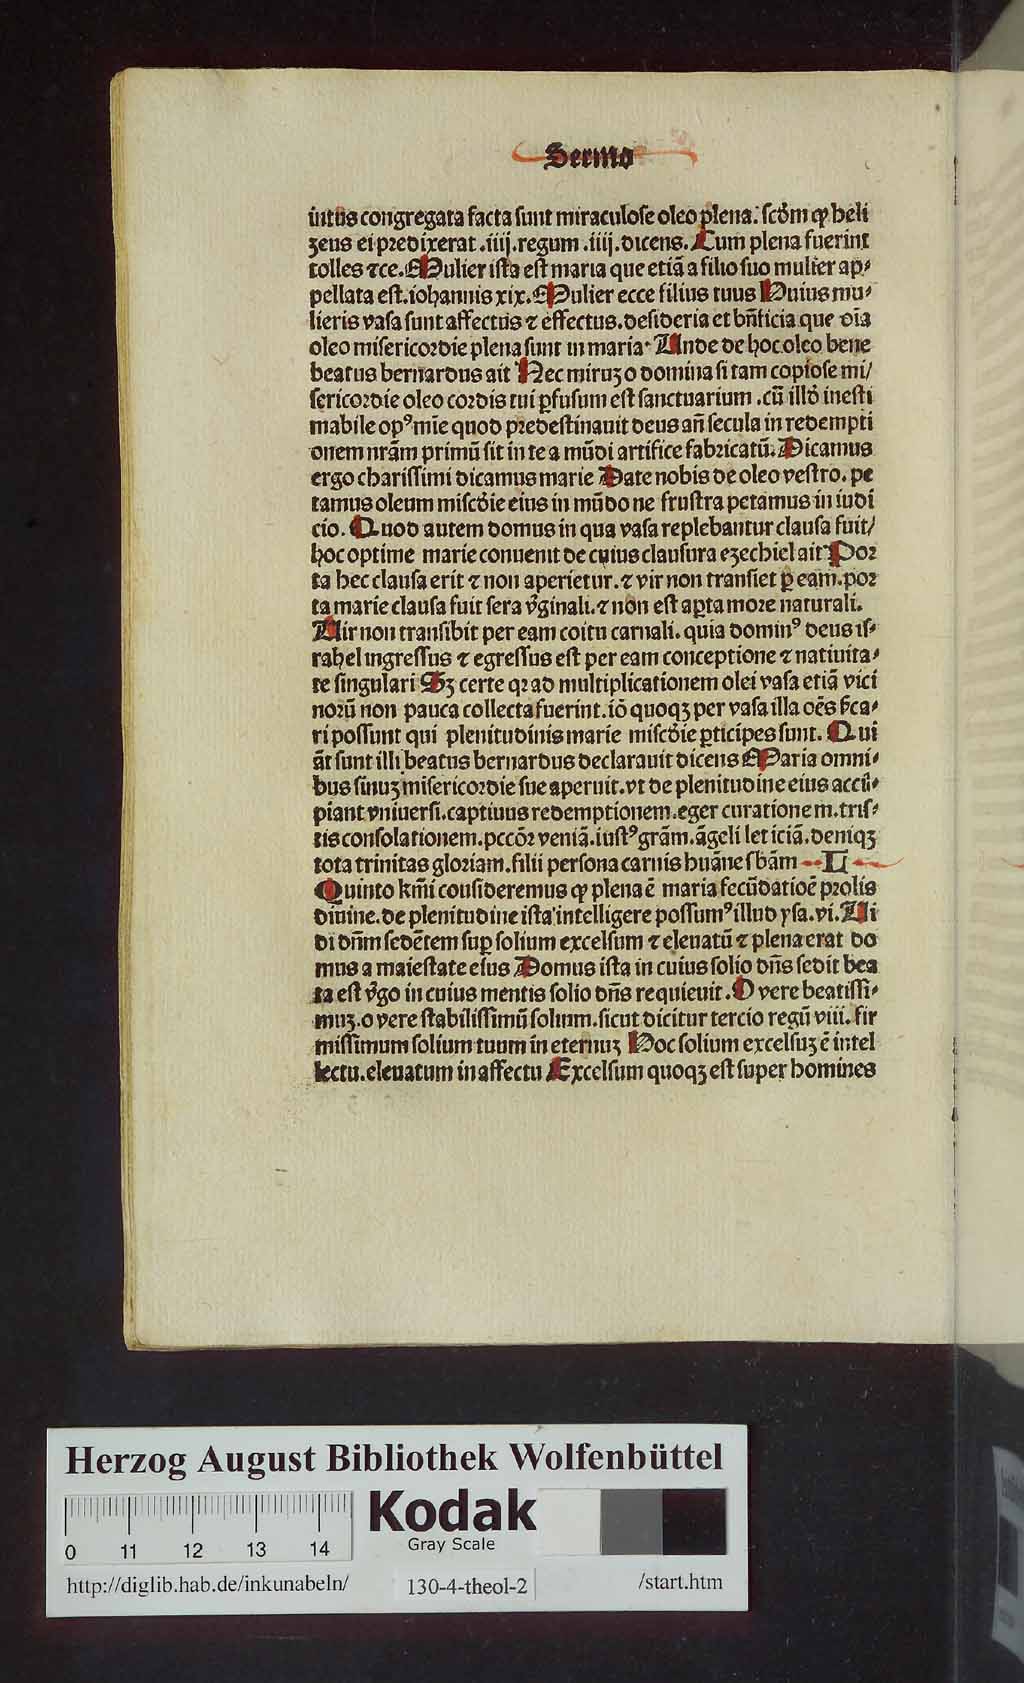 Sermo
intus congregata facta sunt miraculose oleo plena. scd̃m ꝙ heli
zeus ei predixerat .iiij. regum .iiij. dicens. Cum plena fuerint
tolles ⁊ce. Mulier ista est maria que etiã a filio suo mulier ap⸗
pellata est. iohannis xix. Mulier ecce filius tuus Huius mu⸗
lieris vasa sunt affectus ⁊ effectus. desideria et bñficia que oĩa
oleo misericordie plena sunt in maria. Unde de hoc oleo bene
beatus bernardus ait Nec miruꝫ o domina si tam copiose mi/
sericordie oleo cordis tui ꝑfusum est sanctuarium .cũ illd̾ inesti
mabile opꝰ mĩe quod predestinauit deus añ secula in redempti
onem nrãm primũ sit in te a mũdi artifice fabricatũ. Dicamus
ergo charissimi dicamus marie Date nobis de oleo vestro. pe
tamus oleum miscd̾ie eius in mũdo ne frustra petamus in iudi
cio. Quod autem domus in qua vasa replebantur clausa fuit/
hoc optime marie conuenit de cuius clausura ezechiel ait Por
ta hec clausa erit ⁊ non aperietur. ⁊ vir non transiet ꝑ eam. por
ta marie clausa fuit sera v̾ginali. ⁊ non est aꝑta more naturali.
Uir non transibit per eam coitu carnali. quia dominꝰ deus is⸗
rahel ingressus ⁊ egressus est per eam conceptione ⁊ natiuita⸗
te singulari Sꝫ certe qꝛ ad multiplicationem olei vasa etiã vici
norũ non pauca collecta fuerint. iõ quoqꝫ per vasa illa oẽs s̾ca⸗
ri possunt qui plenitudinis marie miscd̾ie ꝑticipes sunt. Qui
ãt sunt illi beatus bernardus declarauit dicens Maria omni⸗
bus sinuꝫ misericordie sue aperuit. vt de plenitudine eius accĩ⸗
piant vniuersi. captiuus redemptionem. eger curationem. tris⸗
tis consolationem. pccõr veniã. iustꝰ grãm. ãgeli leticiã. deniqꝫ
tota trinitas gloriam. filii persona carnis huãne sbãm L
Quinto km̃i consideremus ꝙ plena ẽ maria fecũdatiõe prolis
diuine. de plenitudine ista intelligere possumꝰ illud ysa. vi. Ui
di dñm sedẽtem suꝑ solium excelsum ⁊ eleuatũ ⁊ plena erat do
mus a maiestate eius Domus ista in cuius solio dñs sedit bea
ta est v̾go in cuius mentis solio dñs requieuit. O vere beatissi⸗
muꝫ. o vere stabilissimũ solium. sicut dicitur tercio regũ viii. fir
missimum solium tuum in eternuꝫ Hoc solium excelsuꝫ ẽ intel
lectu. eleuatum in affectu Excelsum quoqꝫ est super homines
Herzog August Bibliothek Wolfenbüttel
0 11 12 13 14
Kodak
Gray Scale
http://diglib.hab.de/inkunabeln/ 130-4-theol-2 /start.htm